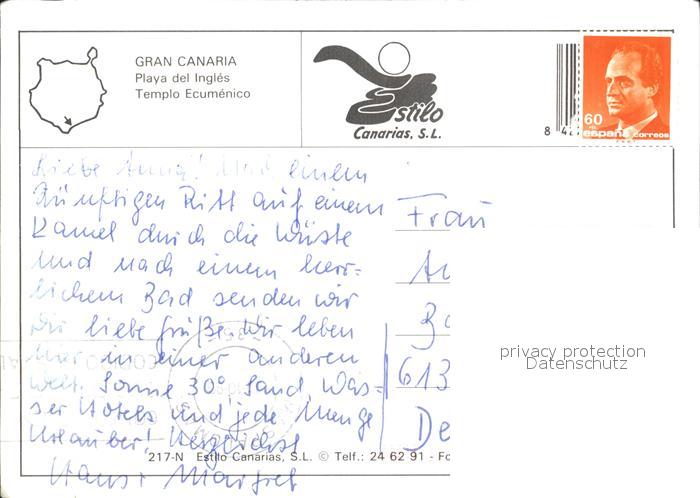 GRAN CANARIA
Playa del Inglés
Templo Ecuménico
Estilo
Canarias, S.L.
8 42
60
españa correos
Liebe Anna! Nach einem
zünftigen Ritt auf einem
Kamel durch die Wüste
und nach einem herr-
lichem Bad senden wir
Dir liebe Grüße. Wir leben
hier in einer anderen
Welt. Sonne 30° Sand, Was-
ser Hotels und jede Menge
Urlauber! Herzlichst
Hans + Margret
Frau
613
De
privacy protection
Datenschutz
217-N Estilo Canarias, S.L. © Telf.: 24 62 91 - Fo